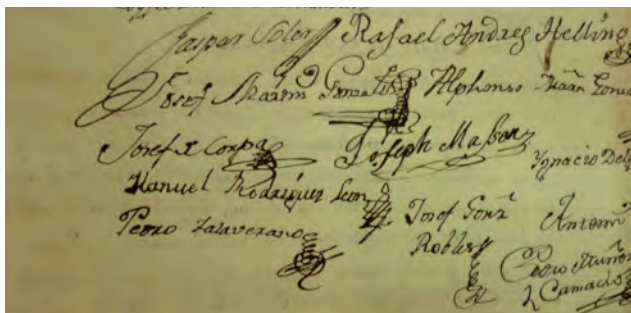 Gaspar Soler Rafael Andres Hellino
Josef Martin Gonzales Alphonso
Josef x Corpa Joseph Masson Ygnacio Del
Manuel Rodriguez Leon
Pedro Talaverano Josef Gonz Antonio
Robles Pedro Muño
Camacho